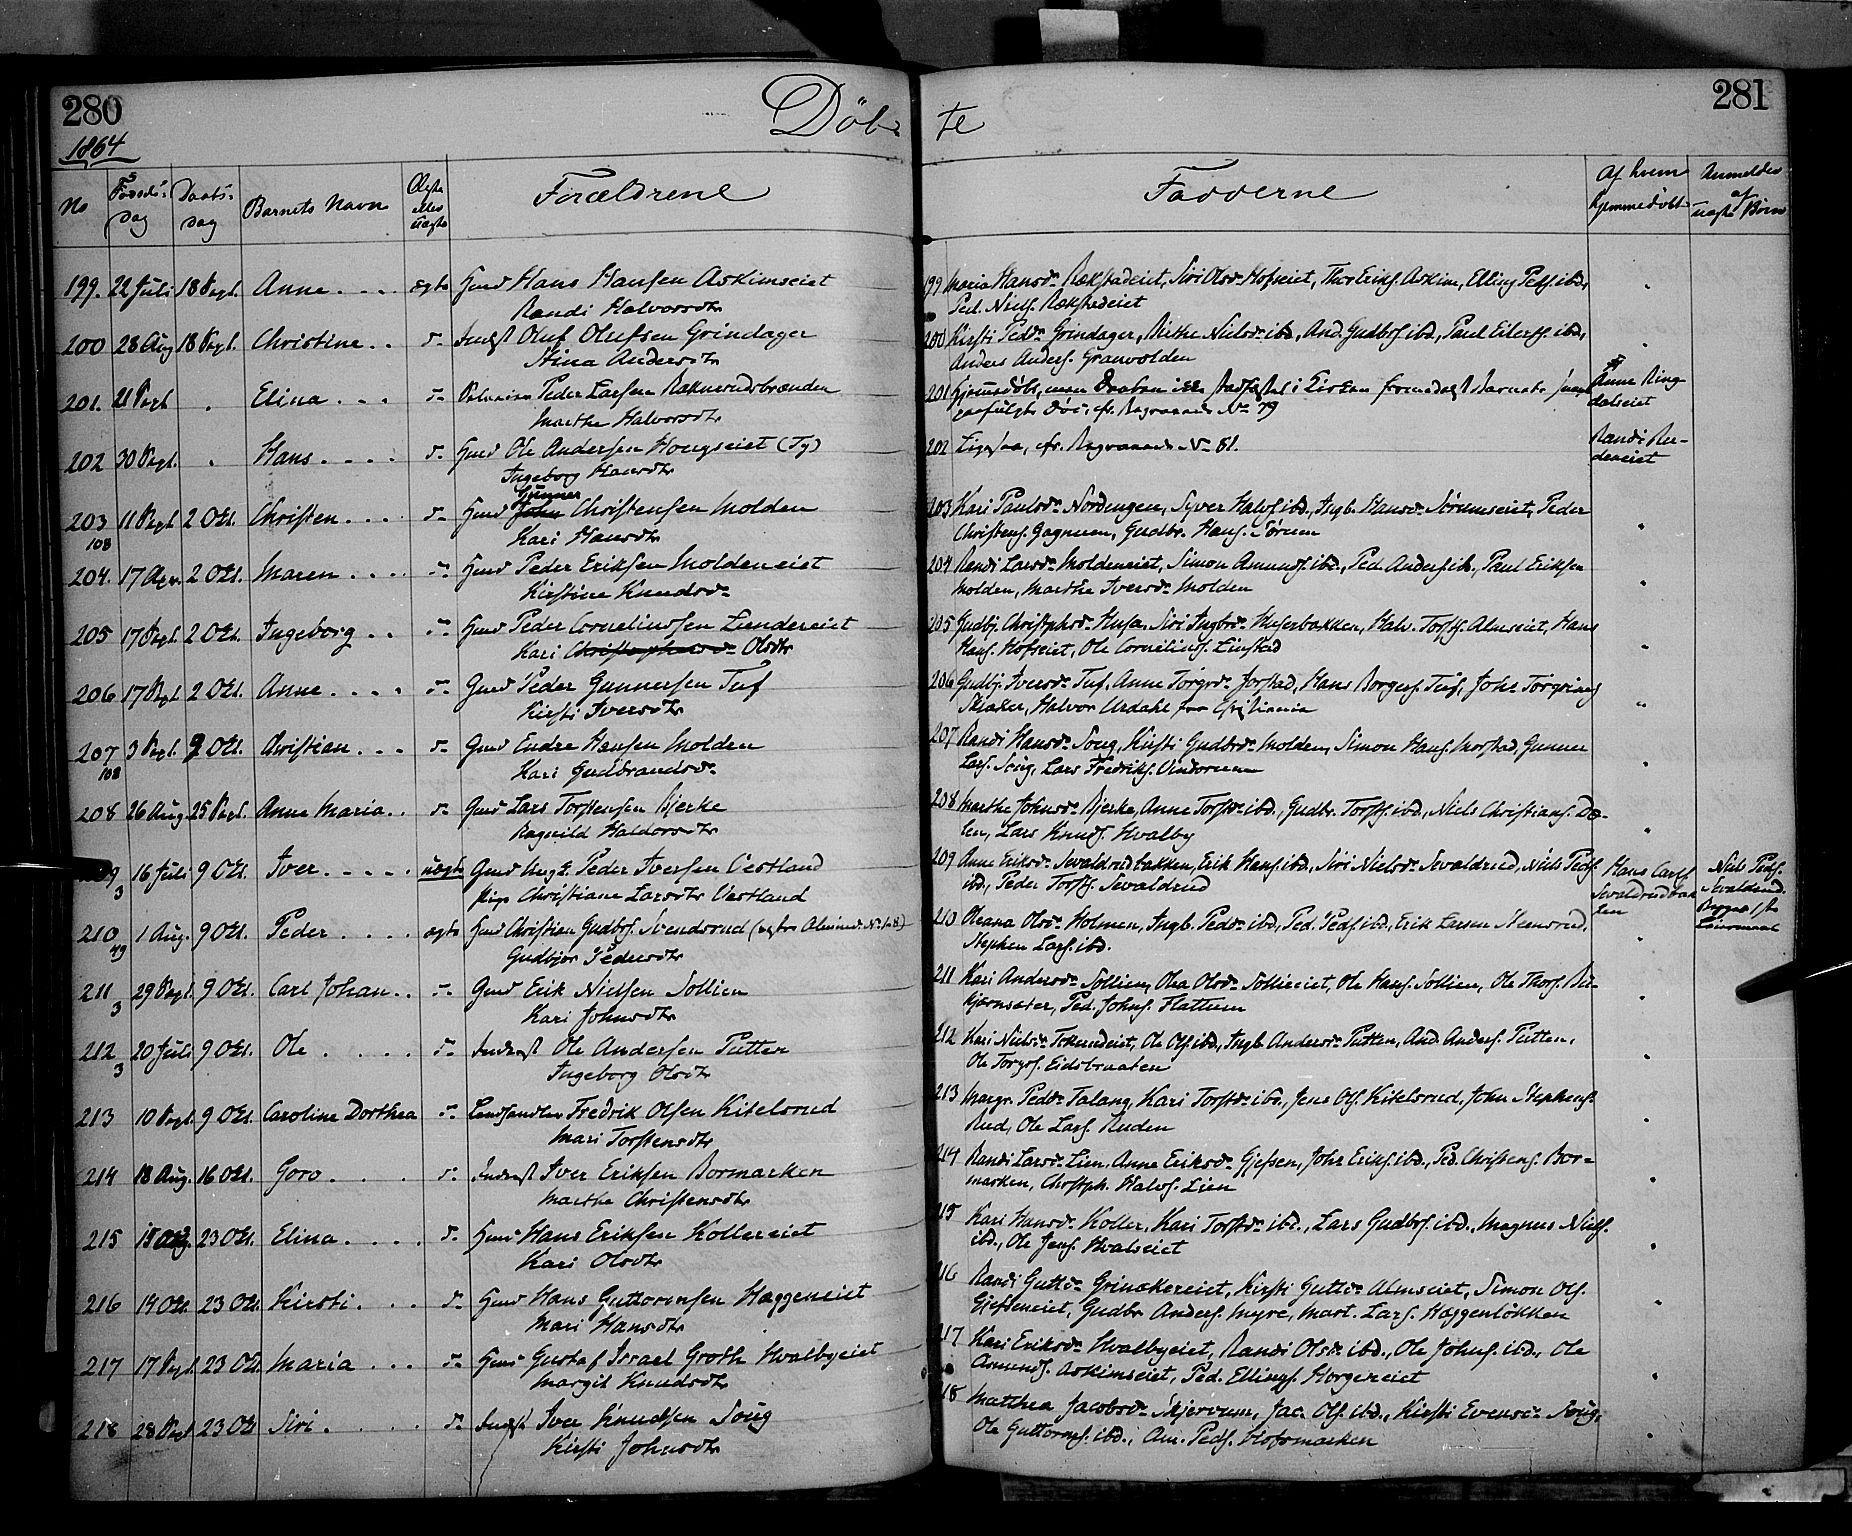 280
1864
Døb-
No
Føds.- Dag
Daabs- Dag
Barnets Navn
Ægte eller uægte
Forældrene
199. 22 Juli 18 Sept. Anne ægte Gmd Hans Hansen Askimseiet
Randi Halvorsdtr
200 28 Aug 18 Sept. Christine do Inderst Oluf Olufsen Grindager
Stina Andersdtr
201. 21 Sept " Elina do Peder Larsen Raknerudsbraaden
Marthe Halvorsdtr
202 30 Sept. " Hans do Gmd Ole Andersen Hougseiet (Ty)
Ingeborg Hansdtr
Gunner
203 11 Sept 2 Okt. Christen do Gmd John Christensen Molden
108 Kari Hansdtr
204. 17 Apr. 2 Okt. Maren do Gmd Peder Eriksen Moldeneiet
Kirstine Knudsd.
205 17 Sept. 2 Okt. Ingeborg do Gmd Peder Corneliussen Lundereiet
Kari Christophersd. Olsdtr
206 17 Sept. 2 Okt. Anne do Gmd Peder Gunnersen Tuf
Kirsti Iversdtr
207 3 Sept. 2 Okt. Christian do Gmd Endre Hansen Molden
108 Kari Gudbrandsd.
208 26 Aug 25 Sept. Anne Maria do Gmd Lars Torstensen Bjerke
Ragnild Haldorsdtr
209 16 Juli 9 Okt. Iver uægte Gmd Ungk. Peder Iversen Vestland
3 Pige Christiane Larsdtr Vestland
210 1 Aug. 9 Okt. Peder ægte Gmd Christian Gudbrs. Svendsrud
49 Gudbjør Pedersdtr
211 29 Sept. 9 Okt. Carl Johan do Gmd Erik Nielsen Sollien
3 Kari Johnsdtr
212 20 Juli 9 Okt. Ole do Inderst Ole Andersen Putten
3 Ingeborg Olsdtr
213 10 Sept. 9 Okt. Caroline Dorthea do Landhandler Fredrik Olsen Kitelsrud
Mari Torstensdtr
214 18 Aug. 16 Okt. Goro do Inderst Iver Eriksen Bormarken
Marthe Christensdtr
215 15 Aug. 23 Okt. Elina do Gmd Hans Eriksen Kollereiet
Kari Olsdtr
216 14 Okt. 23 Okt. Kirsti do Gmd Hans Guttormsen Hæggeneiet
Mari Hansdtr
217 17 Sept. 23 Okt. Maria do Gmd Gustaf Israel Groth Hvalbyeiet
Margit Knudsdtr
218 28 Sept 23 Okt Siri do Inderst Iver Knudsen Soug
Kirsti Johnsdtr
281
te
Fadderne
Af hvem hjemmedøbt
Anmeldes af uægte Børn
199 Maria Hansd. Rækstadeiet, Siri Olsd. Hofseiet, Thor Eriks. Askim, Elling Peds. ibd.,
Ped. Niels. Rækstadeiet
200 Kirsti Pedd. Grindager, Birthe Nielsd. ibd., And. Gudbrs. ibd., Paul Eilerts. ibd.,
Anders Anders. Granvolden
201 Hjemmedøbt, men Daaben ikke stadfæstet i Kirken formedelst Barnets
paafulgte Død, cfr. Begravede No 79
Anne Ringdalseiet
202 Ligesaa, cfr. Begravede No 81.
Randi
203 Kari Paulsd. Nordengen, Syver Halvs. ibd., Ingb. Hansd. Sørumseiet, Peder
Christens. Gagnum, Gudbr. Hans. Sørum
204 Randi Larsd. Moldeneiet, Simon Amunds. ibd., Ped. Anders. ib., Paul Eriksen
Molden, Marthe Iversd. Molden
205 Gudbj. Christophsd. Husa, Siri Ingbrd. Muserbakken, Halv. Torsts. Almseiet, Hans
Hans. Hofseiet, Ole Cornelius. Linstad
206 Gudbj. Iversd. Tuf, Anne Torgrsd. Jorstad, Hans Borgers. Tuf, John Torgrims.
Skiaker, Halvor Urdahl fra Christiania
207 Randi Hansd. Soug, Kirsti Gudbrd. Molden, Simon Hans. Morstad, Gunner
Lars. Soug, Lars Fredriks. Vindorum
208 Marthe Johnsd. Bjerke, Anne Torstd. ibd., Gudbr. Torsts. ibd., Niels Christians. Dælen,
Lars Knuds. Hvalby
209 Anne Eriksd. Sevaldrudbakken, Erik Hans. ibd., Siri Nielsd. Sevaldrud, Niels Peds.
ibd., Peder Torsts. Sevaldrud
Hans Carls. Sevaldrudbakken
Niels Peds. Sevaldrud.
210 Oleana Olsd. Holmen, Ingb. Pedd. ibd., Ped. Peds. ibd., Erik Larsen Steensrud,
Stephen Lars. ibd.
211 Kari Andersd. Sollien, Olea Olsd. Sollieeiet, Ole Hans. Sollien, Ole Thors. Birkjornsæter,
Ped. Johns. Flattum
212 Kari Nielsd. Tokerudeiet, Ole Ols. ibd., Ingb. Andersd. Putten, And. Anders. Putten,
Ole Torgrs. Eidsbraaten
213 Margr. Pedd. Falang, Kari Torstd. ibd., Jens Ols. Kitelsrud, John Stephens.
Rud, Ole Lars. Ruden
214 Randi Larsd. Lien, Anne Eriksd. Gjefsen, John Eriks. ibd., Ped. Christens. Bormarken,
Christph. Halvs. Lien
215 Kari Hansd. Koller, Kari Torstd. ibd., Lars Gudbrs. ibd., Magnus Niels.
ibd., Ole Jens. Hvalseiet
216 Randi Guttd. Grinakereiet, Kirsti Guttd. Almseiet, Simon Ols.
Gjefseneiet, Gudbr. Anders. Myre, Mart. Lars. Hæggenløkken
217 Kari Eriksd. Hvalbyeiet, Randi Olsd. ibd., Ole Johns. ibd., Ole
Amunds. Askimseiet, Ped. Ellings. Horgeneiet
218 Matthea Jacobsd. Skjervum, Jac. Ols. ibd., Kirsti Evensd. Soug,
Ole Guttorms. ibd., Am. Peds. Hofsmarken